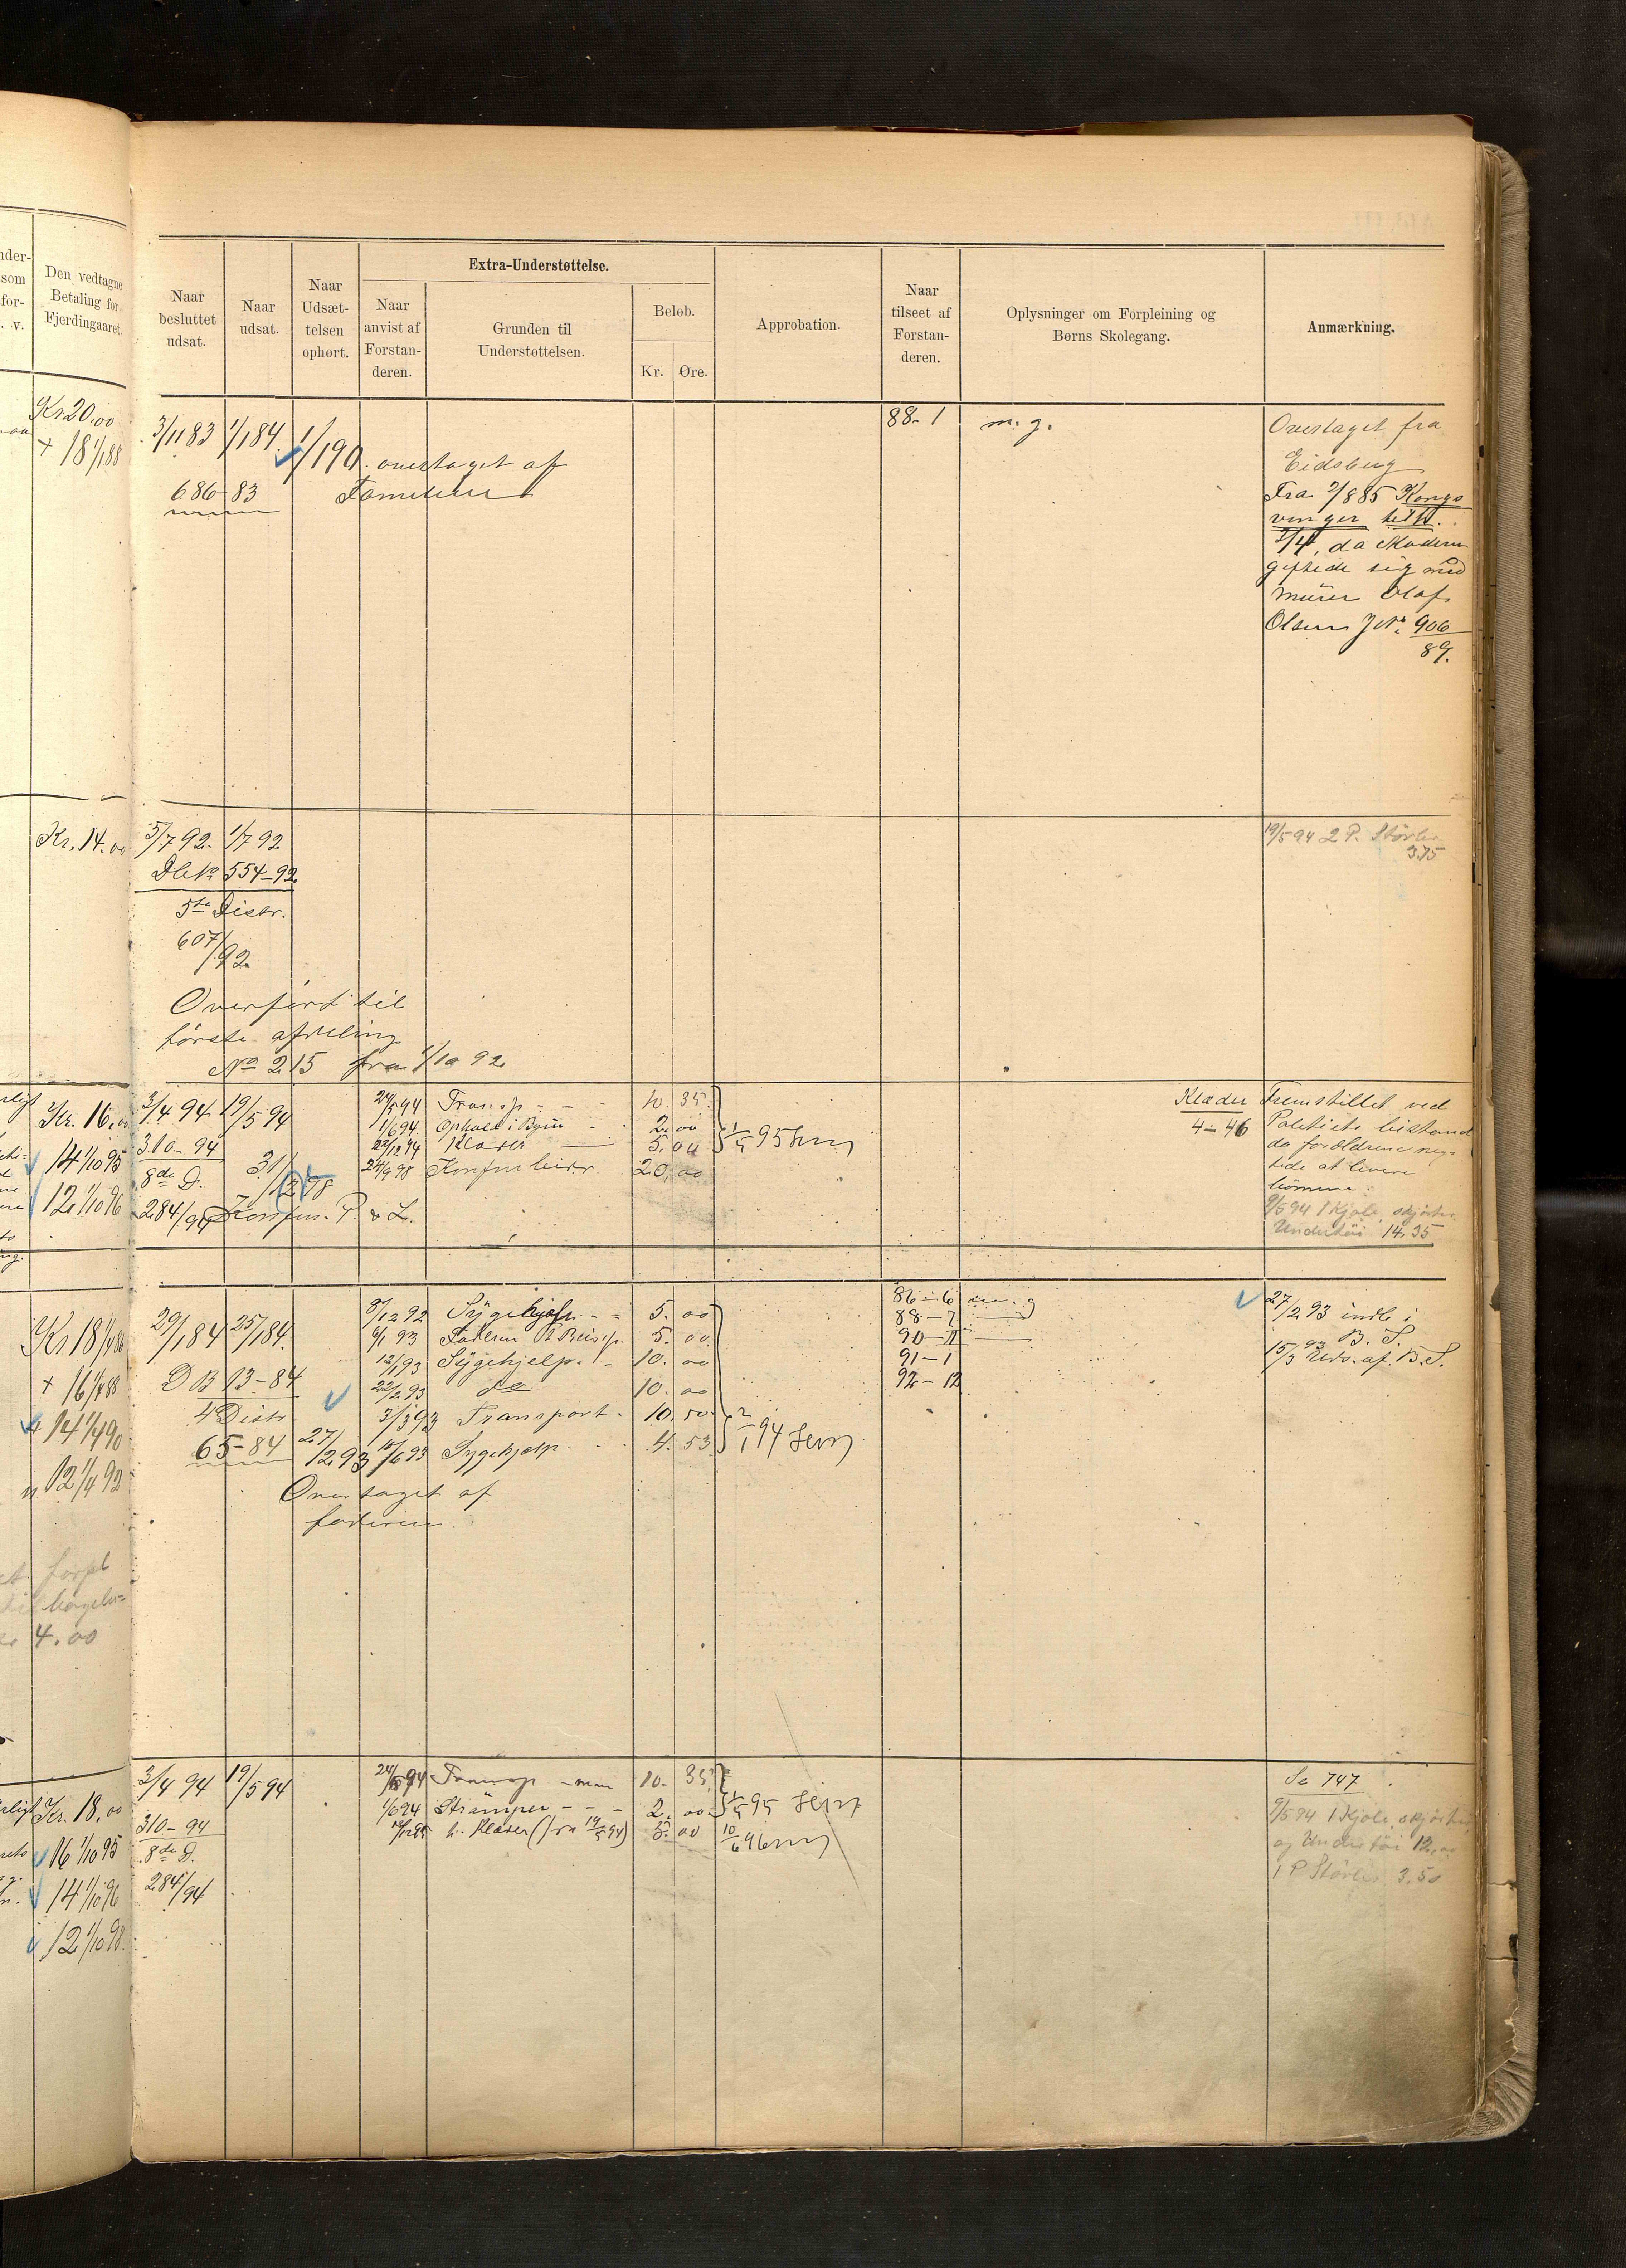 nder-
som
for-
. v.
Den vedtagne
Betaling for
Fjerdingaaret.
Naar
besluttet
udsat.
Naar
udsat.
Naar
Udsæt-
telsen
ophørt.
Extra-Understøttelse.
Naar
anvist af
Forstan-
deren.
Grunden til
Understøttelsen.
Beløb.
Kr. Øre.
Approbation.
Naar
tilseet af
Forstan-
deren.
Oplysninger om Forpleining og
Børns Skolegang.
Anmærkning.
Kr 20.00
+ 18 1/1 88
3/11 83 1/1 84 1/1 90 overtaget af
Familien
686-83
88-1 m. g.
Overtaget fra
Eidsberg
Fra 2/8 85 Kongs
vinger
da Moderen
giftede sig med
murer Olaf
Olsen J No 906
89.
Kr. 14.00
5/7 92. 1/7 92
554-92
5te Distr.
607/92
Overført til
første afdeling
No 215 fra 1/10 92
19/5 94 2 P. Støvler
3.75
Kr. 16.00
14 1/10 95
12 1/10 96
3/4 94 19/5 94
310-94
8de D.
284/94
31/12 98
Konfirm. P. & L.
24/5 94 Transp - - 10.35
1/6 94 Ophold i Byen - 2.00
22/12 94 Klæder 5.00
Konfirm 20.00
1/5 95
Klæder
4-46
Fremstillet ved
Politiets bistand
da forældrene neg-
tede at levere
børnene.
9/5 94 1 Kjole, skjørter
Undertøi 14.35
Kr 18
+ 16 1/1 88
+ 14 1/4 90
" 12 1/4 92
forpl
4.00
29/1 84 25/1 84.
D B 13-84
4 Distr
65-84
27/12 93
Overtaget af
faderen.
8/12 92 Sygehjælp - - 5.00
6/1 93 Faderen 5.00
12/1 93 Sygehjelp. - 10.00
22/2 93 do 10.00
3/3 93 Transport. 10.50
10/6 93 Sygehjælp. 4.53
2/1 94
86-6 m. g
88-7
90-11
91-1
92-12
27/2 93 indl i
B. S.
15/3 93 Uds. af B.S.
Kr. 18.00
16 1/10 95
14 1/10 96
12 1/10 98.
3/4 94 19/5 94
310-94
8de D.
284/94
24/5 94 Transp 10.35
1/6 94 Strømper - - - 2.00
Klæder (fra 19/5 94) 5.00
1/5 95
10/6 96
Se 747
9/5 94 1 Kjole, skjørter
og Undertøi 12.00
1 P Støvler 3.50